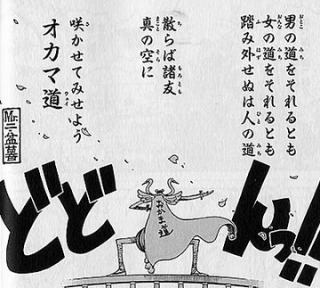 男の道をそれるとも
女の道をそれるとも
踏み外せぬは人の道
散らば諸友
真の空に
咲かせてみせよう
オカマ道
Mr.二盆暮
おかま道
どどんっ!!